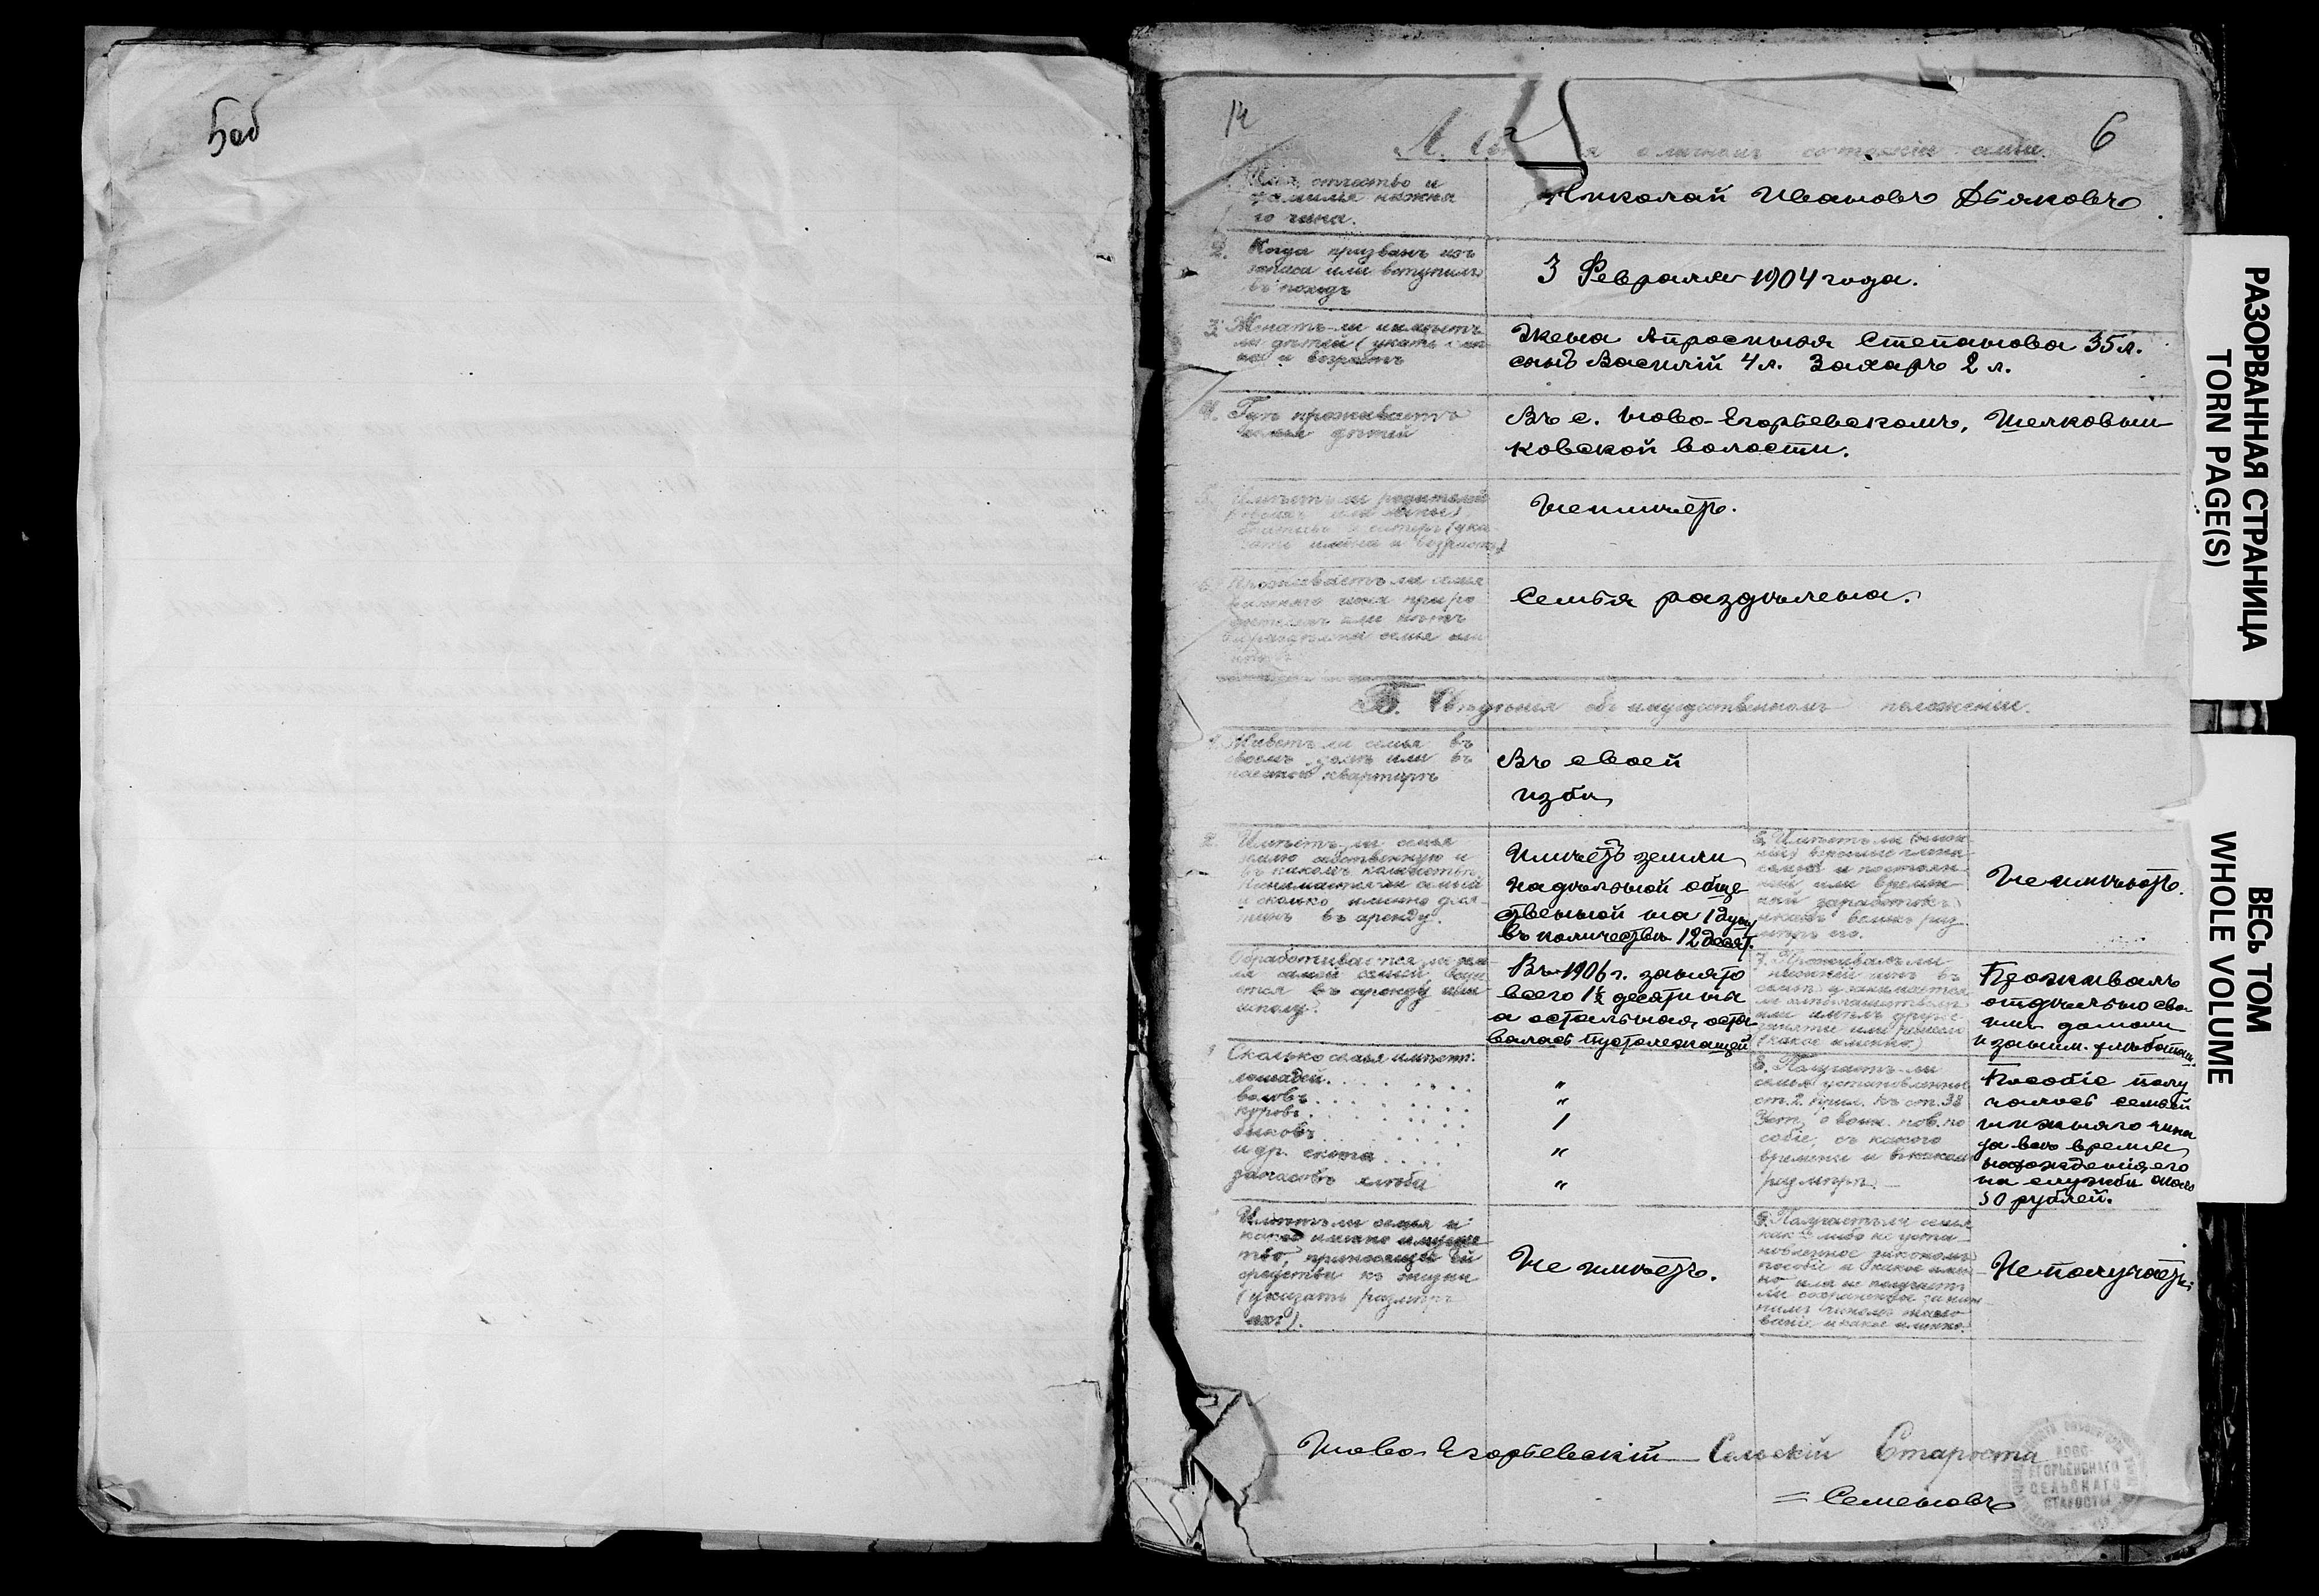 5об
14
6
А. Свѣдѣнія о личномъ составѣ семьи.
Имя, отчество и
фамилія нижня
го чина.
Николай Ивановъ Дьяковъ
2. Когда призванъ изъ
запаса или вступилъ
въ походъ
3 Февраля 1904 года.
3. Женатъ-ли имѣетъ
ли дѣтей (указать име
на и возрастъ
Жена Апросинья Степанова 35 л.
сынъ Василій 4 л. Захаръ 2 л.
4. Гдѣ проживаетъ
семья дѣтей
Въ с. Ново-Егорьевскомъ, Шелковни
ковской волости.
Имѣетъ ли родителей
братьевъ и сестеръ (ука
зать имена и возрастъ)
Не имѣетъ.
Проживаетъ ли семья
нижняго чина при ро
дителяхъ или нѣтъ
семья или
Семья раздѣлена.
Б. Свѣдѣнія объ имущественномъ положеніи.
1. Живетъ ли семья въ
своемъ домѣ или въ
наемной квартирѣ
Въ своей
избѣ
2. Имѣетъ ли семья
землю собственную и
въ какомъ количествѣ
и сколько именно деся
тинъ въ аренду.
Имѣетъ земли
надѣльной обще
ственной на 1 душу
въ количествѣ 12 десят.
Не имѣетъ.
Обрабатывается ли зем
ля самой семьей
въ аренду или
исполу.
Въ 1906 г. занято
всего 1½ десятина
а остальная оста
валась пустолежащей
7. Проживалъ ли
нижній чинъ въ
или имѣлъ другое
занятіе или ремесло
(какое именно)
Проживалъ
отдѣльно сво
имъ домомъ
и заним. хлѣбопаш.
Сколько семья имѣетъ:
лошадей. . . . . . "
воловъ. . . . . . "
коровъ. . . . . . 1
быковъ. . . . . .
и др. скота . . . . "
запасовъ хлѣба "
8. Получаетъ-ли
семья установленное
ст. 2 прил. къ ст. 38
Уст. о воин. пов. по
собіе, съ какого
времени и въ какомъ
размѣрѣ.
Пособіе полу
чалось семьей
нижняго чина
за все время
нахожденія его
на службѣ около
50 рублей.
Имѣетъ ли семья и
какое именно имуще
ство, приносящее ей
средства къ жизни
(указать размѣръ
ихъ).
Не имѣетъ.
9. Получаетъ ли семья
какое либо не уста
новленное закономъ
пособіе и какое имен
но или не получаетъ
ли сохраненное за ниж
нимъ чиномъ жало
ваніе и какое именно.
Не получаетъ.
Ново-Егорьевскій Сельскій Староста
Семеновъ
НОВО-
ЕГОРЬЕВСКАГО
СЕЛЬСКАГО
СТАРОСТЫ
РАЗОРВАННАЯ СТРАНИЦА
TORN PAGE(S)
ВЕСЬ ТОМ
WHOLE VOLUME